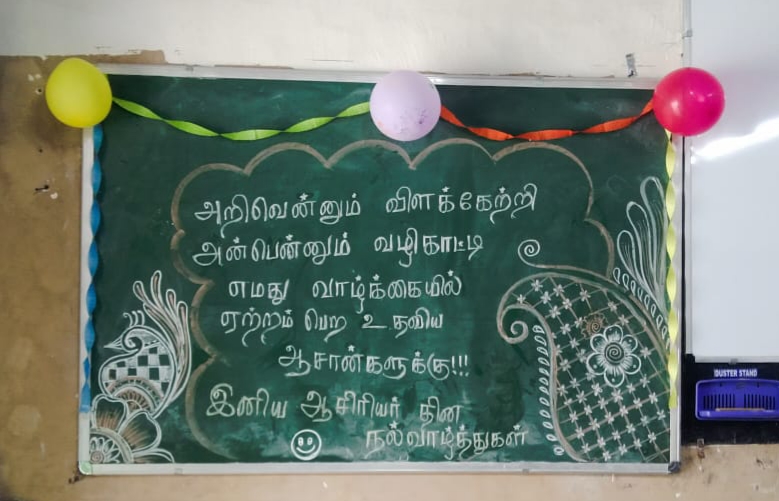 அறிவென்னும் விளக்கேற்றி
அன்பென்னும் வழிகாட்டி
எமது வாழ்க்கையில்
ஏற்றம் பெற உதவிய
ஆசான்களுக்கு!!!
இனிய ஆசிரியர் தின
நல்வாழ்த்துகள்
DUSTER STAND